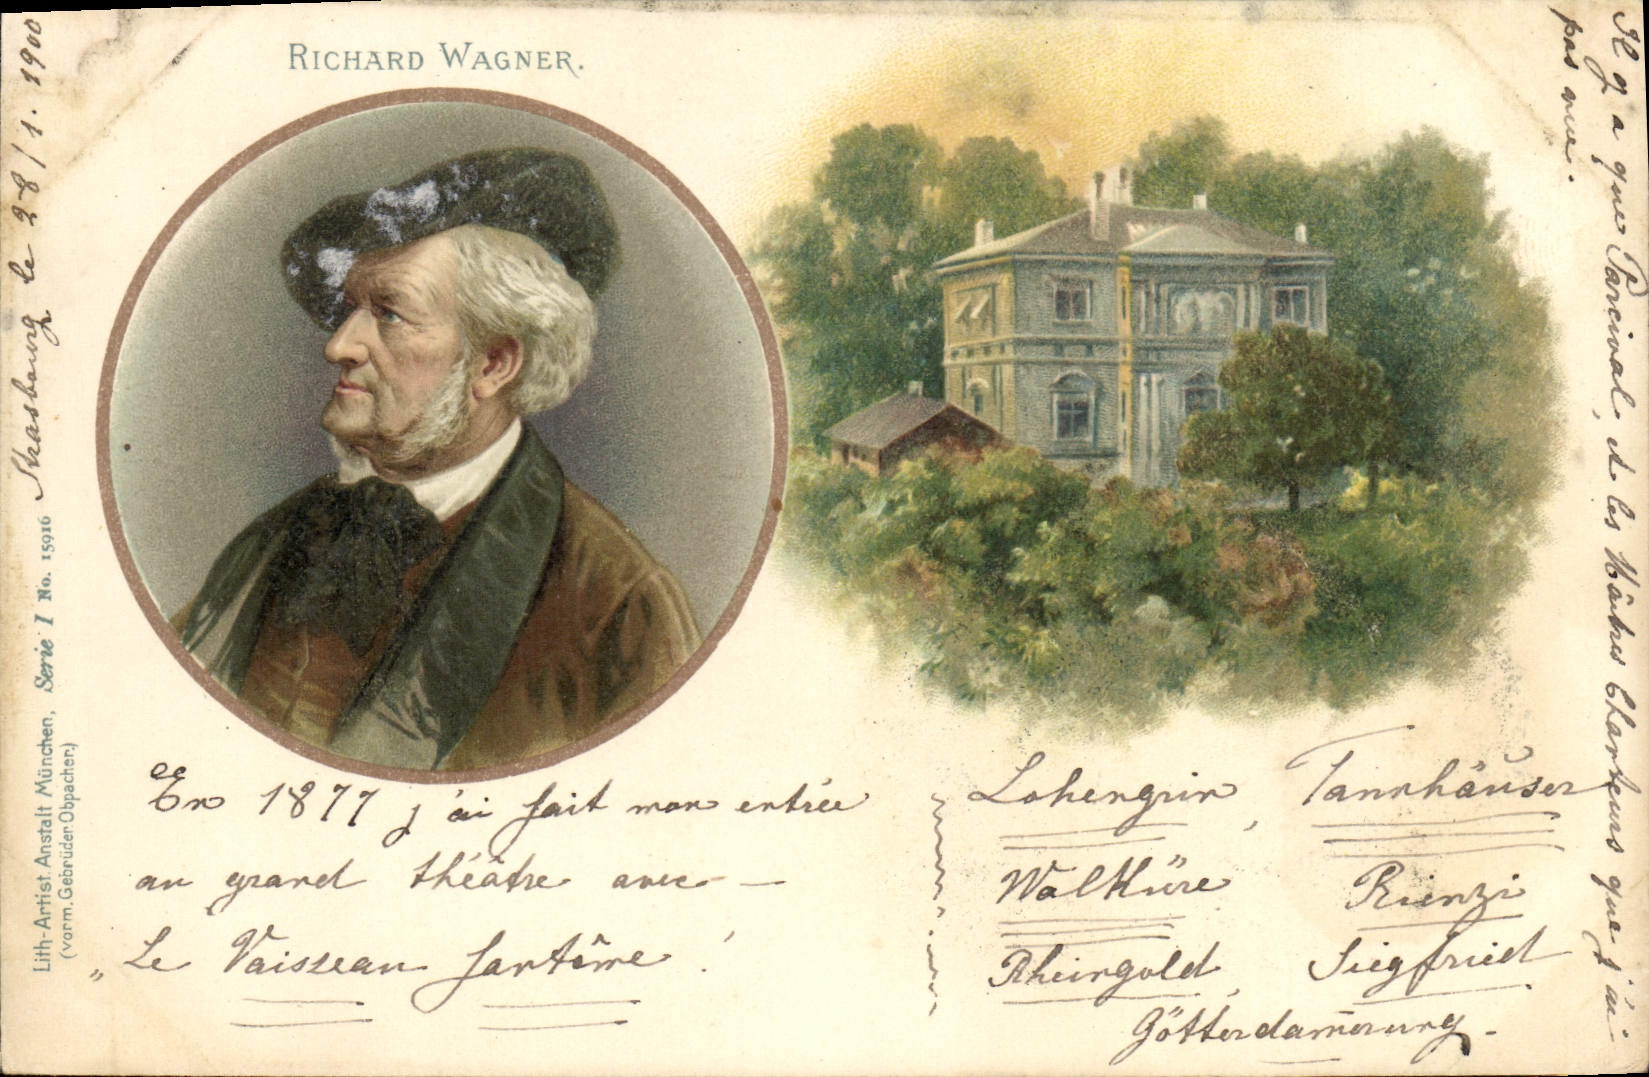 RICHARD WAGNER.
Strasbourg le 28/1. 1900
Lith-Artist. Anstalt München, Serie I No. 15916
(vorm. Gebrüder Obpacher.)
En 1877 j'ai fait mon entrée
au grand théâtre avec —
„Le Vaisseau fantôme!
Lohengrin, Tannhäuser
Walküre Rienzi
Rheingold, Siegfried
Götterdam̄erung.
Il y a que Parcival, et les Maîtres Chanteurs que j'ai
pas vue.